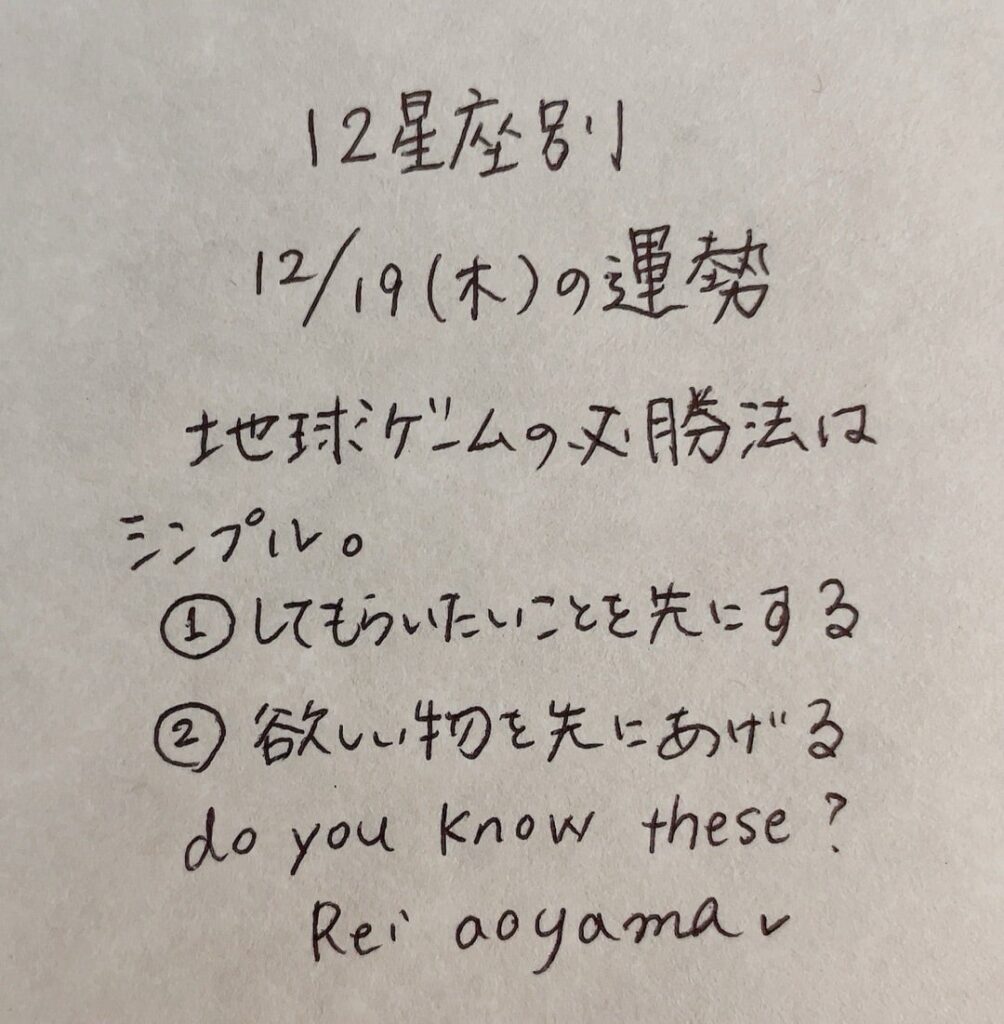 12星座別
12/19(木)の運勢
地球ゲームの必勝法は
シンプル。
①してもらいたいことを先にする
②欲しい物を先にあげる
do you know these?
Rei aoyama✓